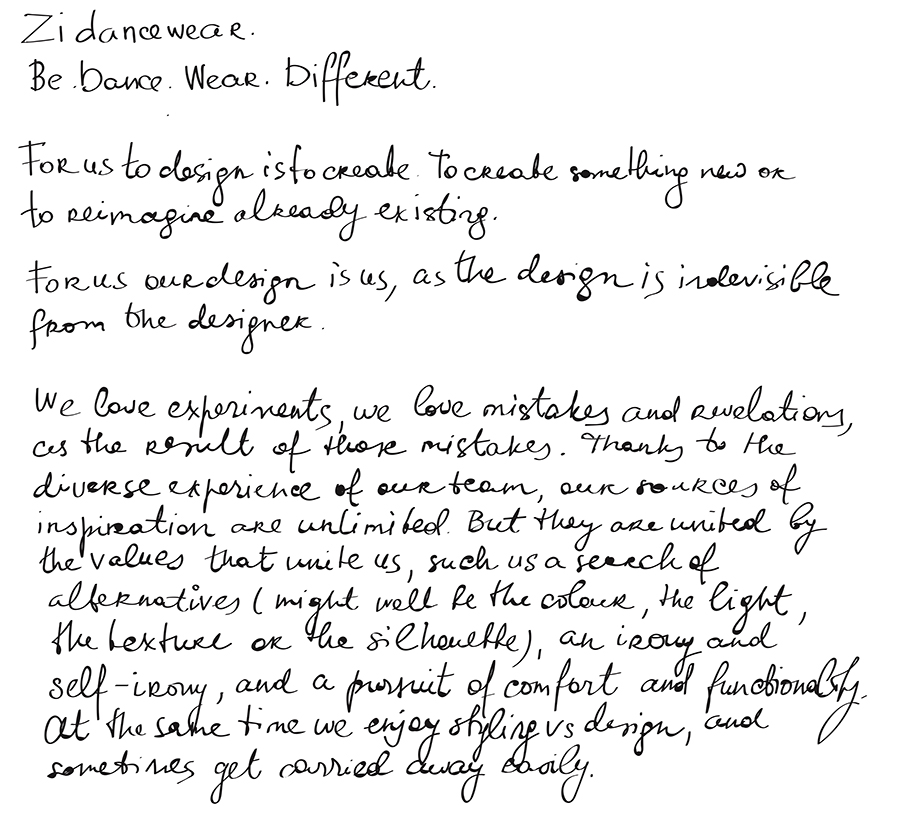 Zi dancewear.
Be. Dance. Wear. Different.
For us to design is to create. To create something new or
to reimagine already existing.
For us our design is us, as the design is indevisible
from the designer.
We love experiments, we love mistakes and revelations,
as the result of those mistakes. Thanks to the
diverse experience of our team, our sources of
inspiration are unlimited. But they are united by
the values that unite us, such us a search of
alternatives (might well be the colour, the light,
the texture or the silhouette), an irony and
self-irony, and a pursuit of comfort and functionality.
At the same time we enjoy styling vs design, and
sometimes get carried away easily.